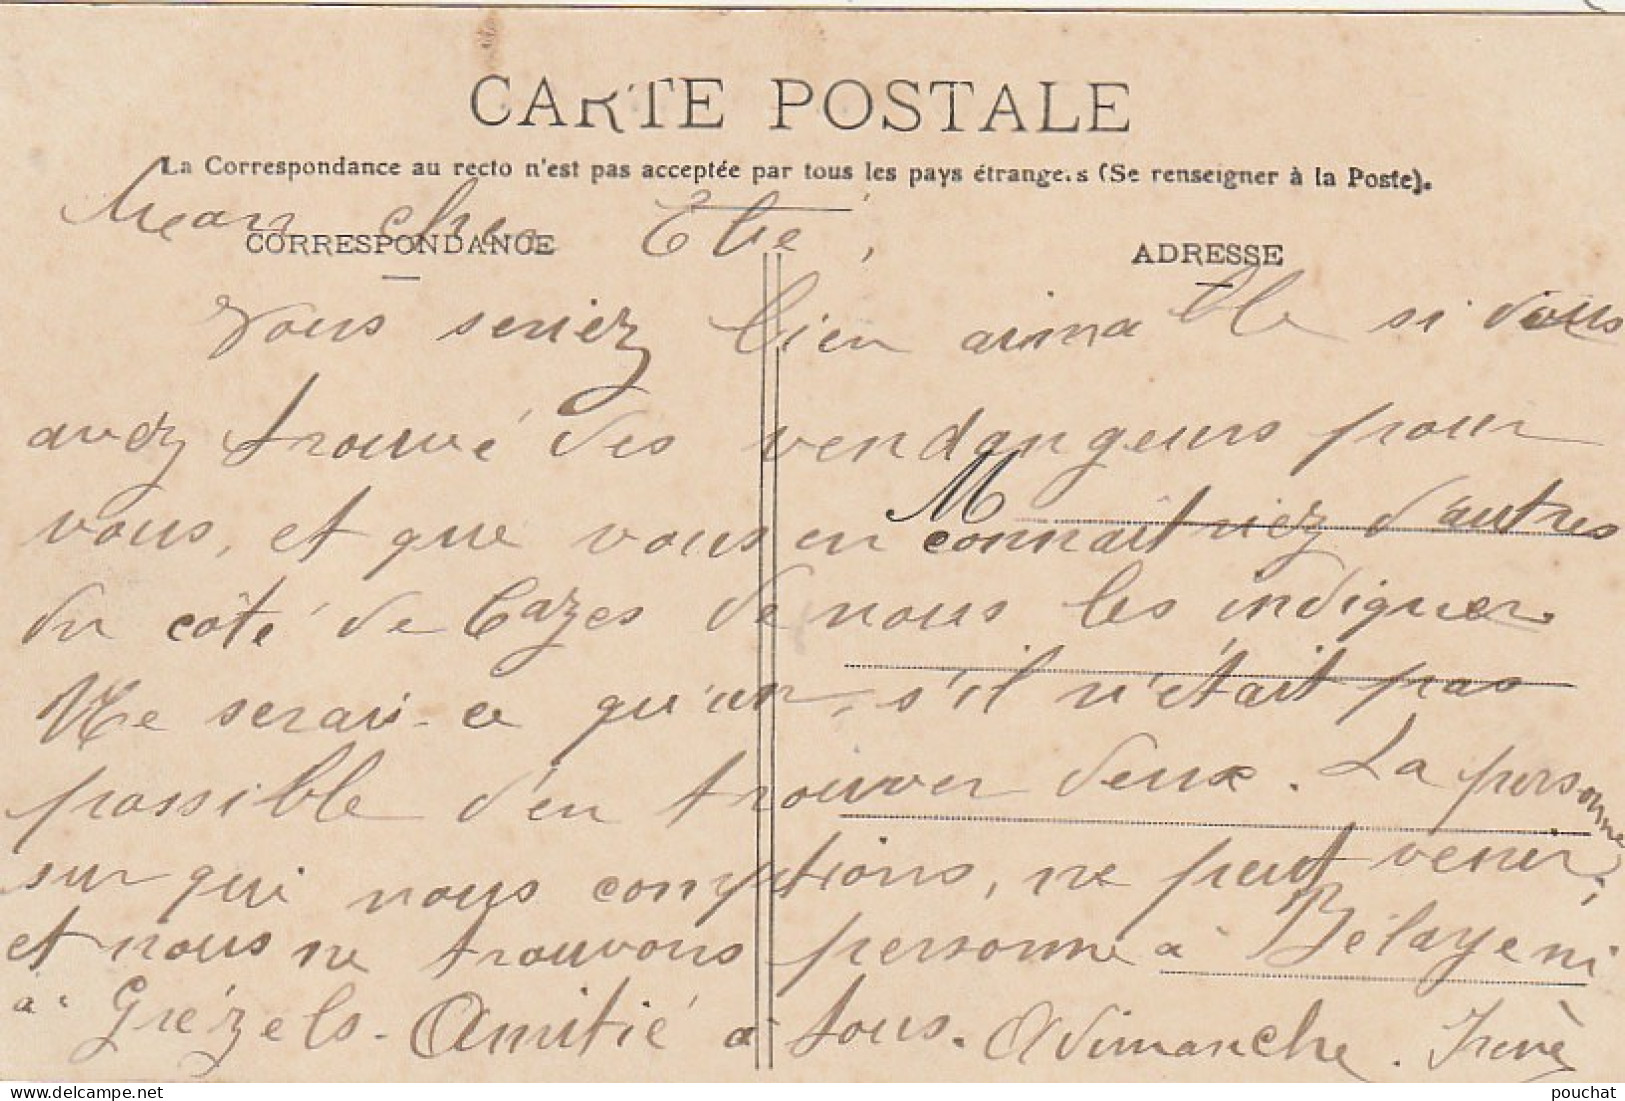 CARTE POSTALE
La Correspondance au recto n'est pas acceptée par tous les pays étrangers (Se renseigner à la Poste).
Mon cher Elie,
CORRESPONDANCE
ADRESSE
Vous seriez bien aimable si vous
avez trouvé des vendangeurs pour
M
vous, et que vous en connaitriez d'autres
du côté de Cazes de nous les indiquer.
Ne serait-ce qu'un, s'il n'était pas
possible d'en trouver deux. La personne
sur qui nous comptions, ne peut venir,
et nous ne trouvons personne à Bélaye ni
à Grézels. Amitié à tous. A dimanche. Irène
pouchat